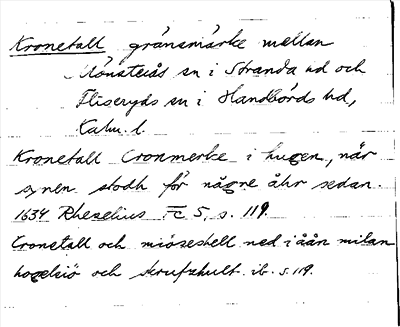 Kronetall gränsmärke mellan
Mönsterås sn i Stranda hd och
Fliseryds sn i Handbörds hd,
Kalm. l.
Kronetall Cronmerke i hugen, når
synen stodh för någre åhr sedan.
1634 Rhezelius Fc 5, s. 119.
Cronetall och miöseshell ned i åån milan
hogelsiö och skrufzhult. ib. s. 119.